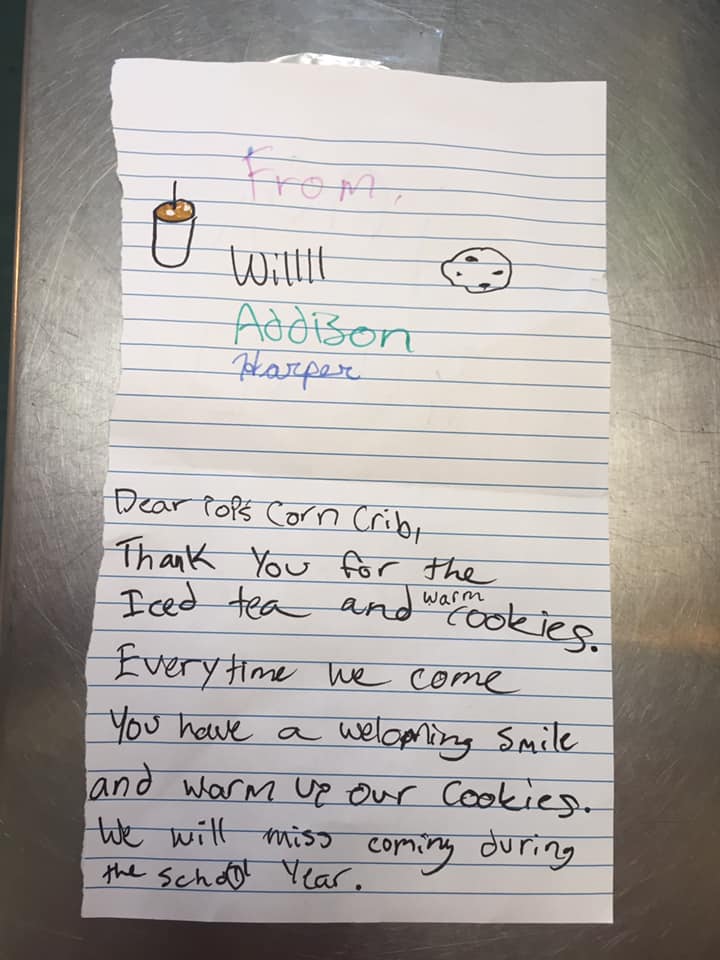 From,
Willlll
Addison
Harper
Dear Pop's Corn Crib,
Thank You for the
Iced tea and warm cookies.
Everytime we come
You have a welcoming smile
and warm up our cookies.
We will miss coming during
the school Year.